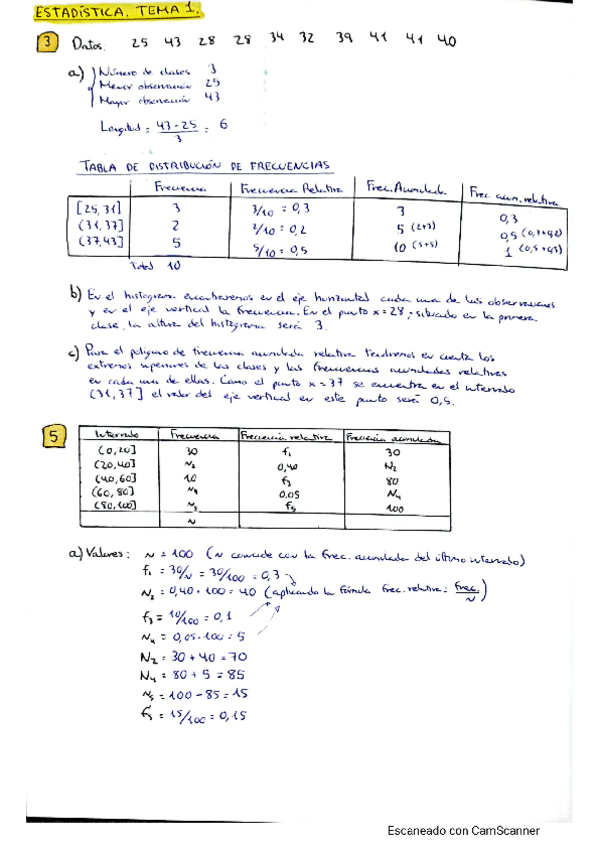 ESTADÍSTICA. TEMA 1.
3 Datos: 25 43 28 28 34 32 39 41 41 40
a) Número de clases 3
Menor observación 25
Mayor observación 43
Longitud = 43-25 / 3 = 6
TABLA DE DISTRIBUCIÓN DE FRECUENCIAS
Frecuencia Frecuencia Relativa Frec. Acumulada Frec acum. relativa
[25,31] 3 3/10 = 0,3 3 0,3
(31,37] 2 2/10 = 0,2 5 (2+3) 0,5 (0,3+0,2)
(37,43] 5 5/10 = 0,5 10 (5+5) 1 (0,5+0,5)
Total 10
b) En el histograma encontraremos en el eje horizontal cada una de las observaciones
y en el eje vertical la frecuencia. En el punto x=28, situado en la primera
clase, la altura del histograma será 3.
c) Para el polígono de frecuencia acumulada relativa tendremos en cuenta los
extremos superiores de las clases y las frecuencias acumuladas relativas
en cada una de ellas. Como el punto x=37 se encuentra en el intervalo
(31,37] el valor del eje vertical en este punto será 0,5.
5 Intervalo Frecuencia Frecuencia relativa Frecuencia acumulada
(0,20] 30 f₁ 30
(20,40] n₂ 0,40 N₂
(40,60] 10 f₃ 80
(60,80] n₄ 0,05 N₄
(80,100] n₅ f₅ 100
N
a) Valores: N = 100 (N coincide con la frec. acumulada del último intervalo)
f₁ = 30/N = 30/100 = 0,3
N₂ = 0,40 · 100 = 40 (aplicando la fórmula frec. relativa = Frec./N)
f₃ = 10/100 = 0,1
N₄ = 0,05 · 100 = 5
N₂ = 30 + 40 = 70
N₄ = 80 + 5 = 85
n₅ = 100 - 85 = 15
f₅ = 15/100 = 0,15
Escaneado con CamScanner